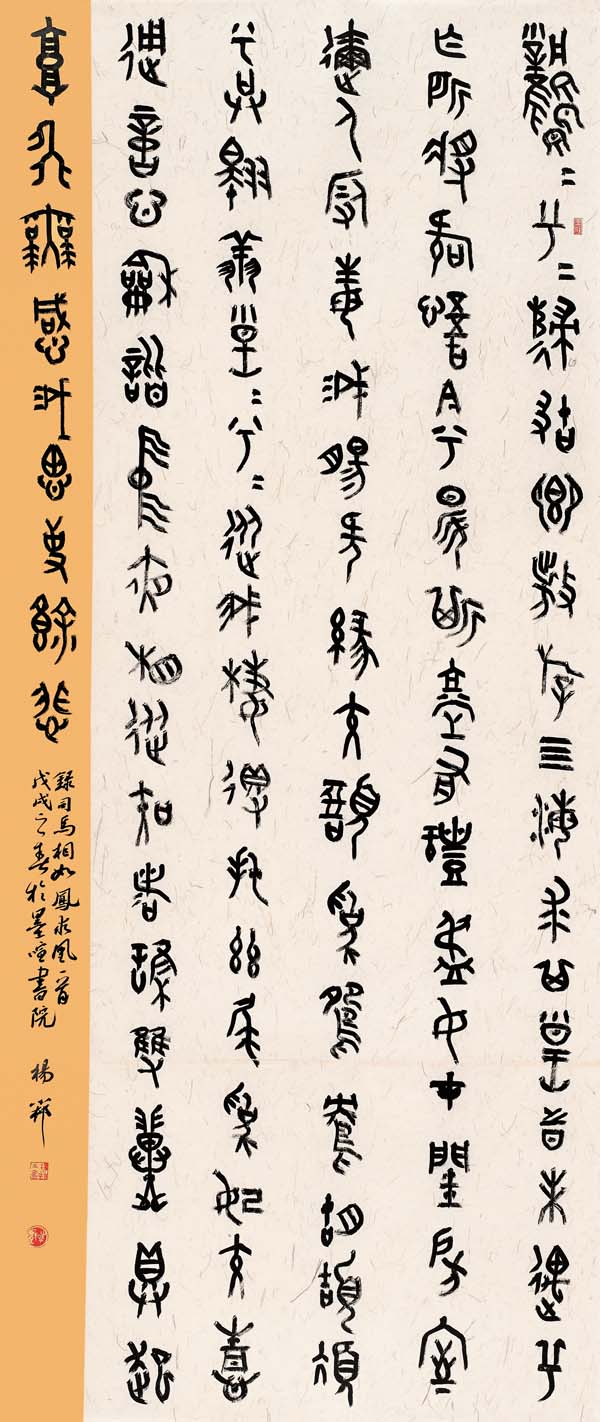 鳳=兮=歸故鄉敖游四海求其皇時未遇兮
亡所將何悟今兮升斯堂有豔淑女才閨房室
邇人遐毒我腸何緣交頸為鴛鴦胡頡頏
兮共翱翔皇=兮=從我棲得托茲尾為妃交喜
通意心龢諧中夜相從知者誰雙翼具起
高飛無感我思使餘悲
錄司馬相如鳳求凰一首
戊戌之春於墨喧書院 楊